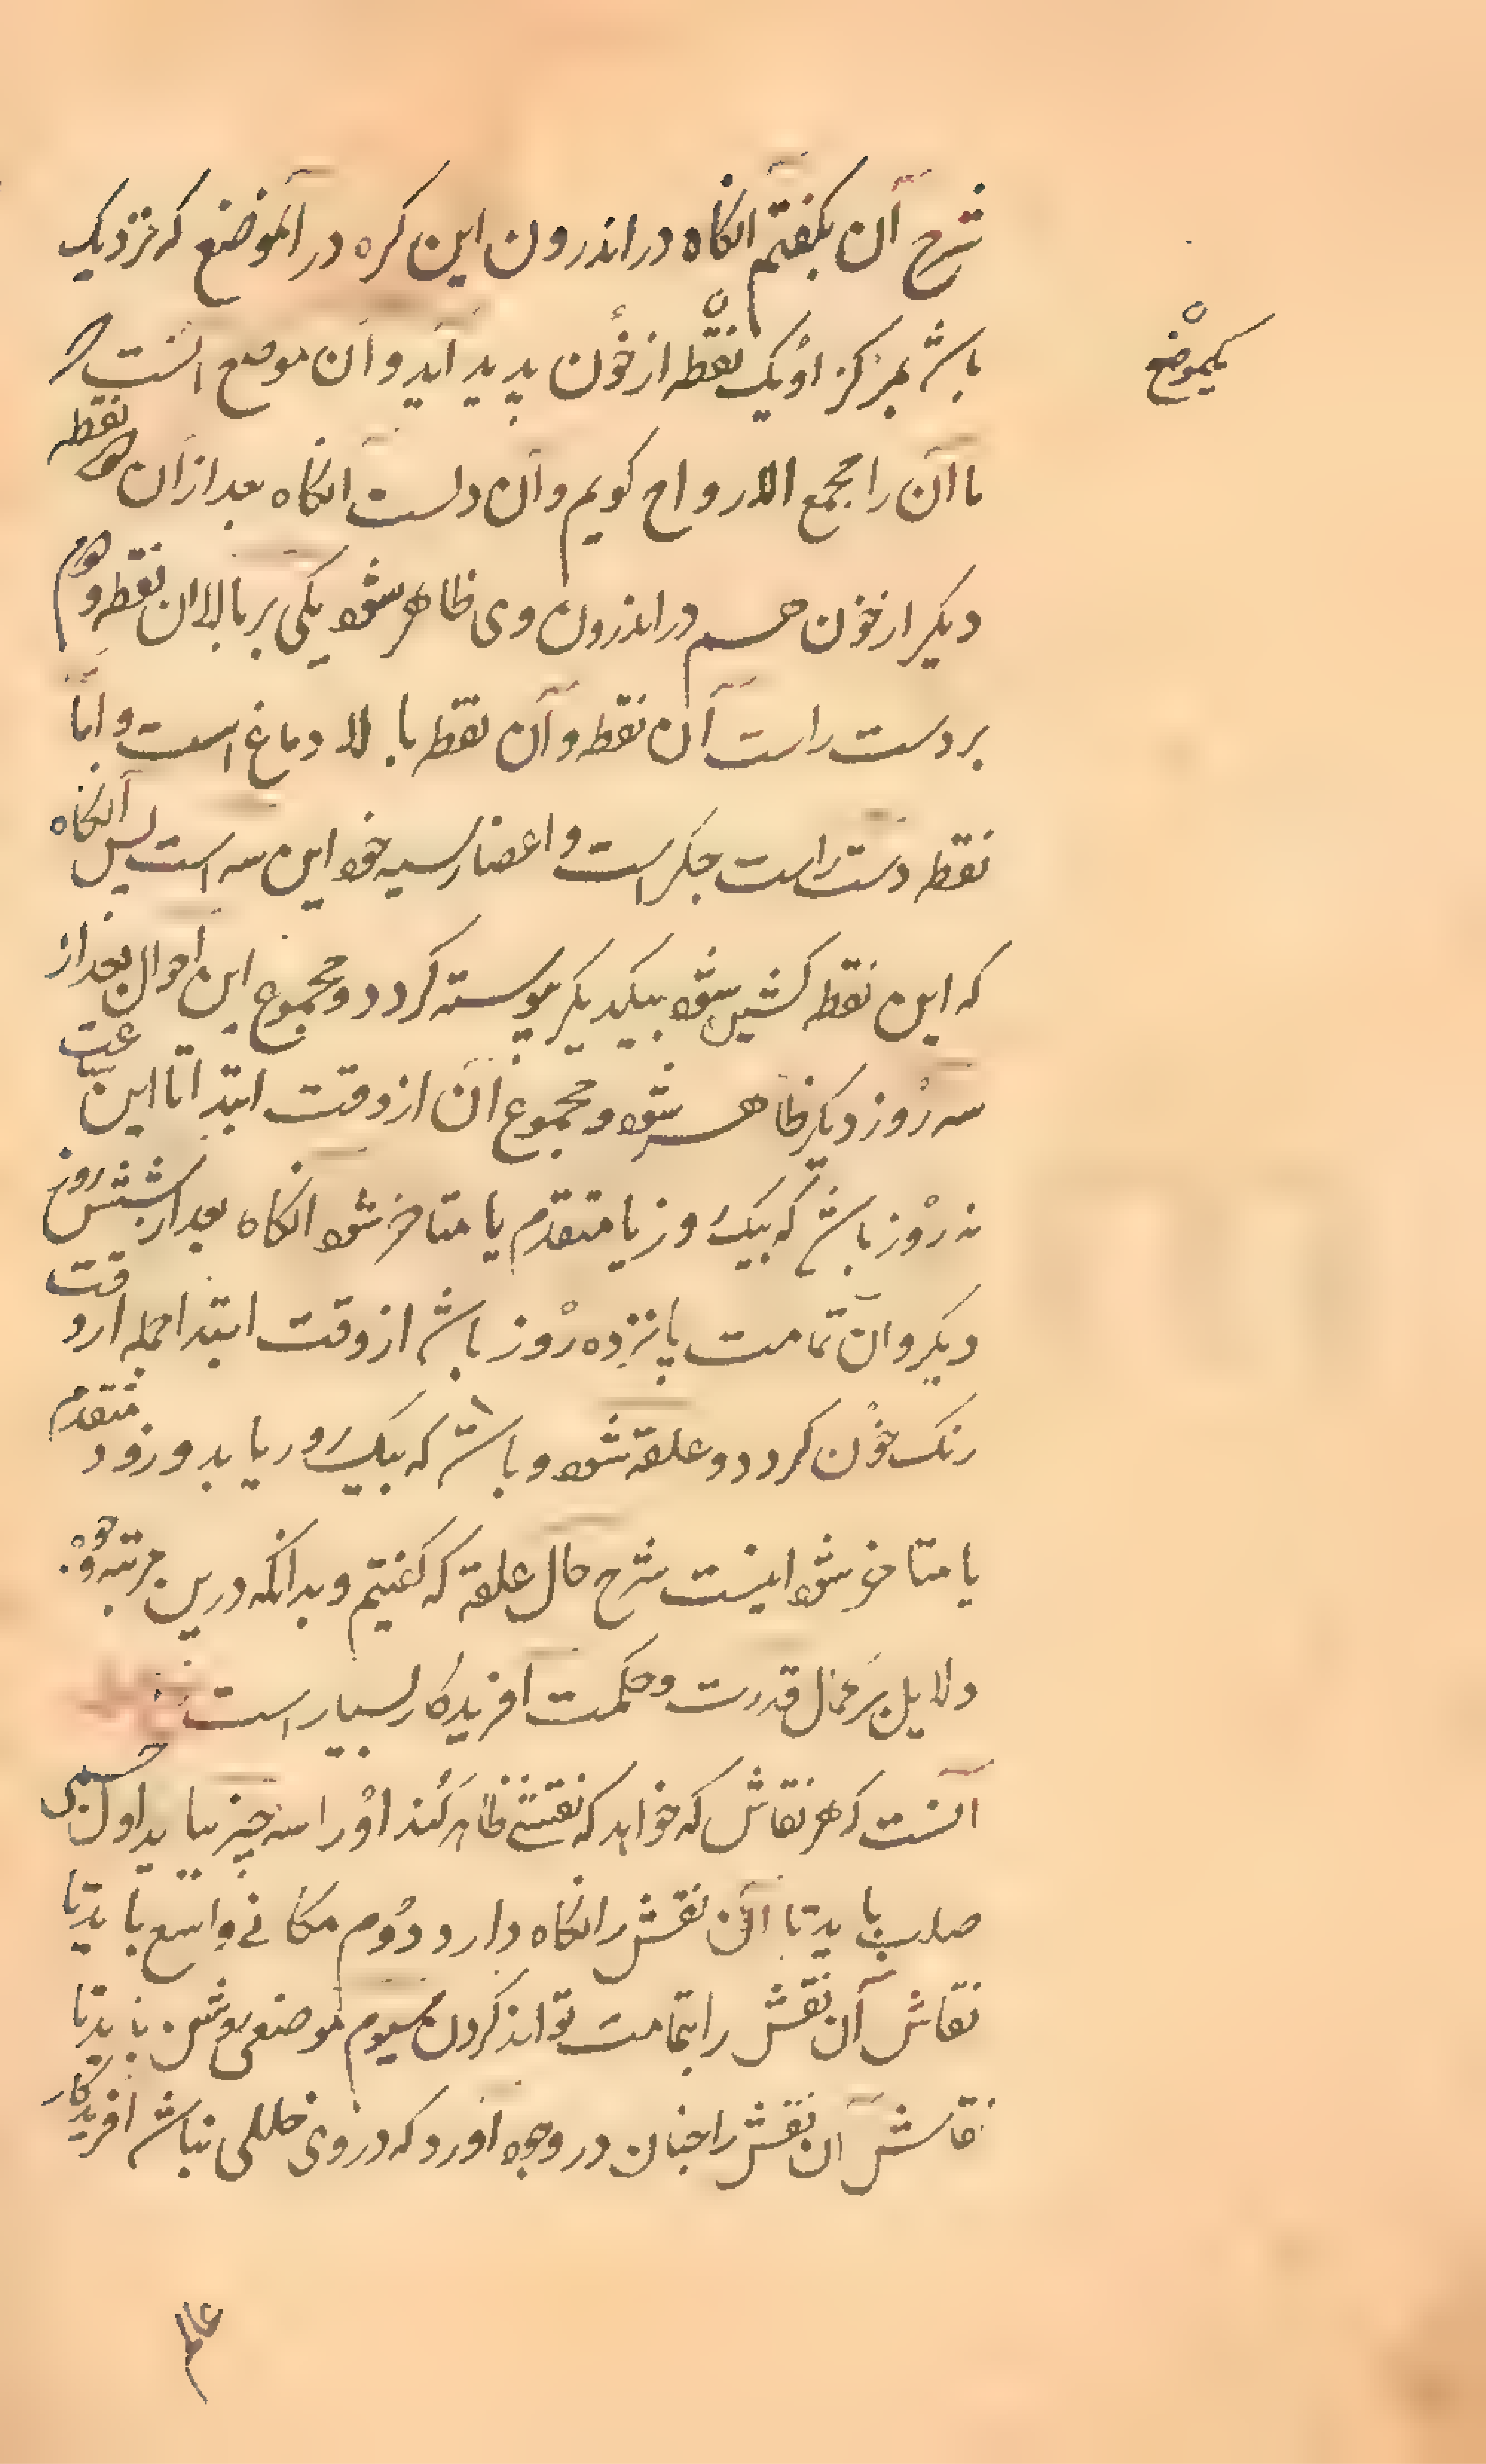 شرح آن بگفتم انکاه در اندرون این کره در آنموضع که نزدیک
باشد بمرکز او یک نقطه از خون پدید آید و آن موضع آنست که
یکموضع
ما آن را مجمع الارواح کویم و آن دلست انکاه بعد از آن دو نقطه
دیکر از خون هم در اندرون وی ظاهر شود یکی بر بالا ان نقطه و دوم
بر دست راست آن نقطه و آن نقطه بالا دماغ است و اما
نقطه دست راست جکر است و اعضا رئیسه خود این سه است پس آنکاه
که این نقطه کشیده شود بیکدیکر پیوسته کردد و مجموع این احوال بعد از
سه روز دیکر ظاهر شود و مجموع آن از وقت ابتدا تا این ساعت
نه روز باشد که بیک روز یا متقدم یا متاخر شود انکاه بعد از شش روز
دیکر و آن تمامت پانزده روز باشد از وقت ابتدا جمله از وقت
رنک خون کردد و علقه شود و باشد که بیک روز یا بدو روز متقدم
یا متاخر شود اینست شرح حال علقه که کفتیم و بدانکه درین مرتبه
دلایل بر کمال قدرت و حکمت افریدکار بسیار است
آنست که هر نقاش که خواهد که نقشی ظاهر کند او را سه چیز بباید اول جسمی
صلب باید تا آن نقش را نکاه دارد دوم مکانی واسع باید تا
نقاش آن نقش را بتمامت تواند کردن سیوم موضعی روشن باید تا
نقاش آن نقش را چنان در وجود آورد که در وی خللی نباشد افریدکار
عالم